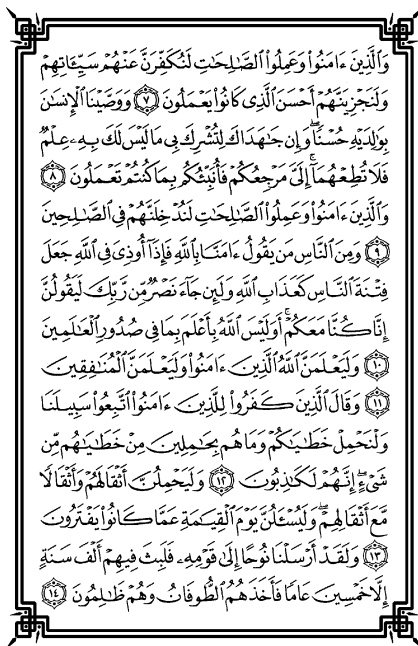 وَٱلَّذِينَ ءَامَنُواْ وَعَمِلُواْ ٱلصَّٰلِحَٰتِ لَنُكَفِّرَنَّ عَنْهُمْ سَيِّـَٔاتِهِمْ
وَلَنَجْزِيَنَّهُمْ أَحْسَنَ ٱلَّذِى كَانُواْ يَعْمَلُونَ ٧ وَوَصَّيْنَا ٱلْإِنسَٰنَ
بِوَٰلِدَيْهِ حُسْنًا ۖ وَإِن جَٰهَدَاكَ لِتُشْرِكَ بِى مَا لَيْسَ لَكَ بِهِۦ عِلْمٌ
فَلَا تُطِعْهُمَآ ۚ إِلَىَّ مَرْجِعُكُمْ فَأُنَبِّئُكُم بِمَا كُنتُمْ تَعْمَلُونَ ٨
وَٱلَّذِينَ ءَامَنُواْ وَعَمِلُواْ ٱلصَّٰلِحَٰتِ لَنُدْخِلَنَّهُمْ فِى ٱلصَّٰلِحِينَ
٩ وَمِنَ ٱلنَّاسِ مَن يَقُولُ ءَامَنَّا بِٱللَّهِ فَإِذَآ أُوذِىَ فِى ٱللَّهِ جَعَلَ
فِتْنَةَ ٱلنَّاسِ كَعَذَابِ ٱللَّهِ وَلَئِن جَآءَ نَصْرٌ مِّن رَّبِّكَ لَيَقُولُنَّ
إِنَّا كُنَّا مَعَكُمْ ۚ أَوَلَيْسَ ٱللَّهُ بِأَعْلَمَ بِمَا فِى صُدُورِ ٱلْعَٰلَمِينَ
١٠ وَلَيَعْلَمَنَّ ٱللَّهُ ٱلَّذِينَ ءَامَنُواْ وَلَيَعْلَمَنَّ ٱلْمُنَٰفِقِينَ
١١ وَقَالَ ٱلَّذِينَ كَفَرُواْ لِلَّذِينَ ءَامَنُواْ ٱتَّبِعُواْ سَبِيلَنَا
وَلْنَحْمِلْ خَطَٰيَٰكُمْ وَمَا هُم بِحَٰمِلِينَ مِنْ خَطَٰيَٰهُم مِّن
شَىْءٍ ۖ إِنَّهُمْ لَكَٰذِبُونَ ١٢ وَلَيَحْمِلُنَّ أَثْقَالَهُمْ وَأَثْقَالًا
مَّعَ أَثْقَالِهِمْ ۖ وَلَيُسْـَٔلُنَّ يَوْمَ ٱلْقِيَٰمَةِ عَمَّا كَانُواْ يَفْتَرُونَ
١٣ وَلَقَدْ أَرْسَلْنَا نُوحًا إِلَىٰ قَوْمِهِۦ فَلَبِثَ فِيهِمْ أَلْفَ سَنَةٍ
إِلَّا خَمْسِينَ عَامًا فَأَخَذَهُمُ ٱلطُّوفَانُ وَهُمْ ظَٰلِمُونَ ١٤